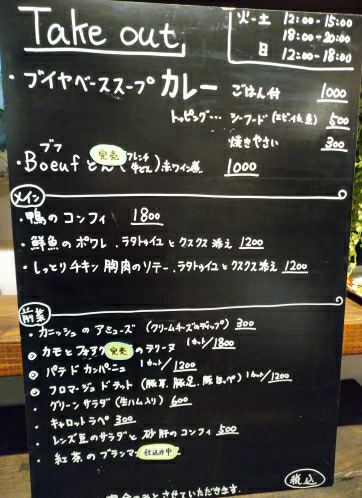 Take out
火-土 12:00-15:00
18:00-20:00
日 12:00-18:00
・ブイヤベーススープ カレー ごはん付 1000
トッピング… シーフード(エビ,イカ,魚) 500
焼きやさい 300
ブフ
・Boeuf どん 完売 (フレンチ牛どん)赤ワイン煮 1000
メイン
・鴨のコンフィ 1800
・鮮魚のポワレ、ラタトゥイユとクスクス添え 1200
・しっとりチキン胸肉のソテー、ラタトゥイユとクスクス添え 1200
前菜
・カニッシュのアミューズ (クリームチーズのディップ) 300
カモとフォアグラ 完売 のテリーヌ 1カット/1800
パテドカンパーニュ 1カット/1200
フロマージュドテット (豚耳、豚足、豚ほっぺ) 1カット/1200
・グリーンサラダ(生ハム入り) 600
・キャロットラペ 300
・レンズ豆のサラダと砂肝のコンフィ 500
・紅茶のブランマ 仕込み中
税込
とさせていただきます.